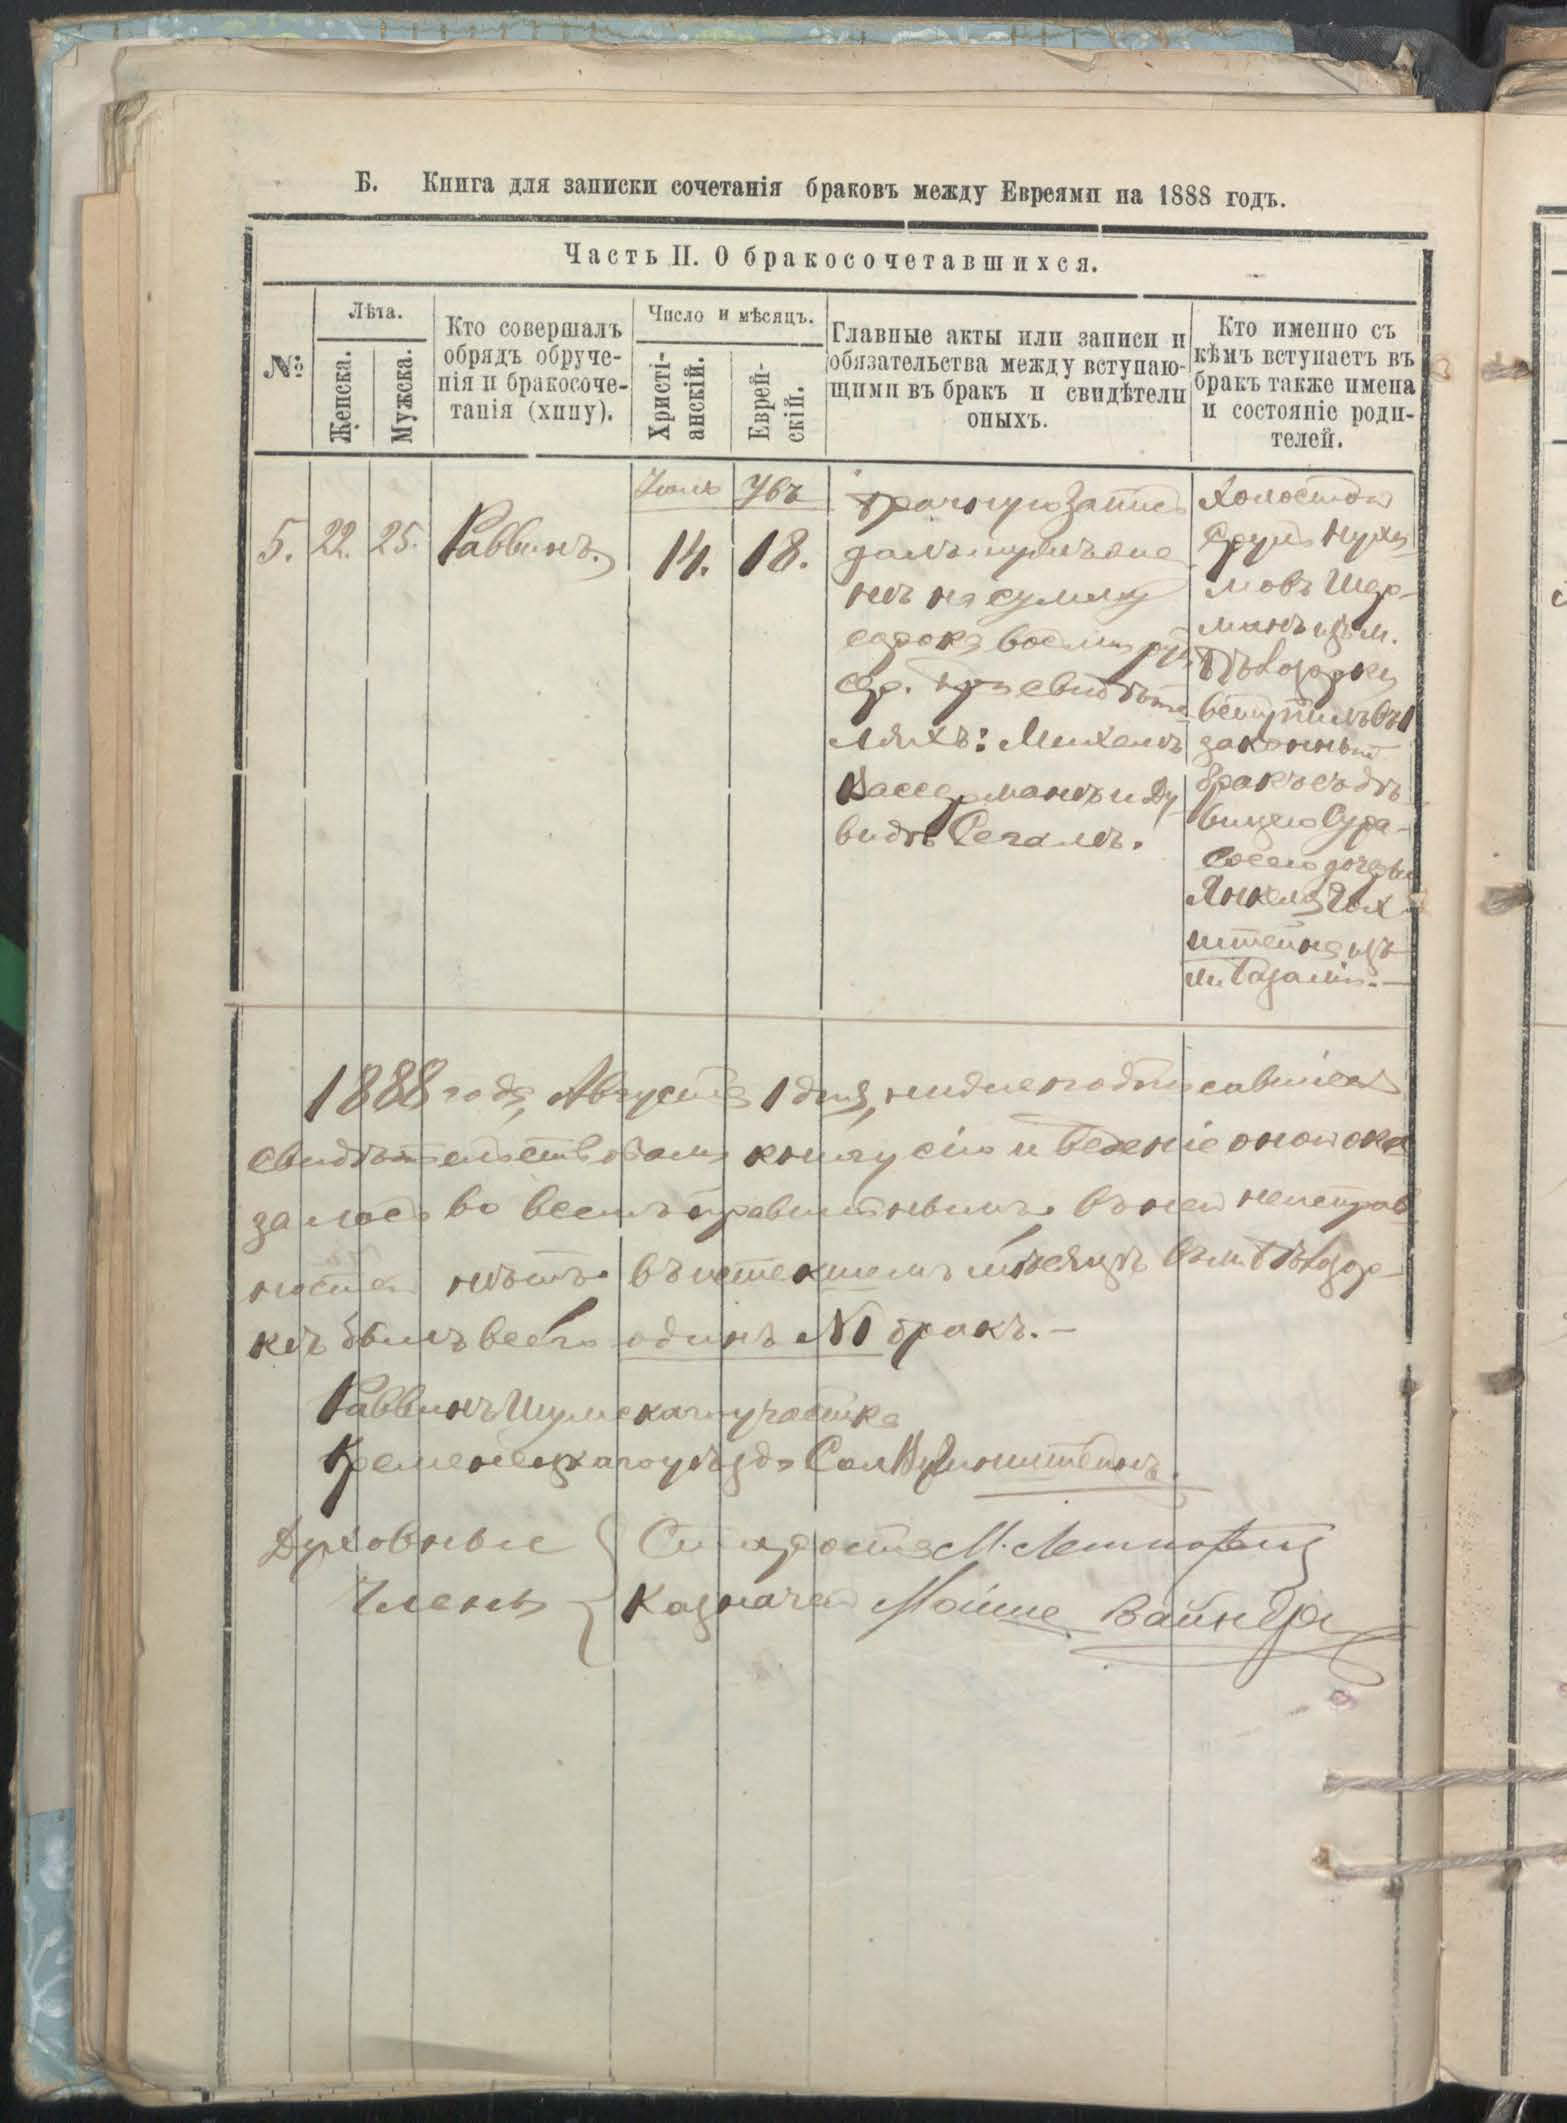 Б. Книга для записки сочетанія браковъ между Евреями на 1888 годъ.
Часть II. О бракосочетавшихся.
№
Лѣта.
Женска.
Мужска.
Кто совершалъ
обрядъ обруче-
нія и бракосоче-
танія (хипу).
Число и мѣсяцъ.
Христі-
анскій.
Еврей-
скій.
Главные акты или записи и
обязательства между вступаю-
щими въ бракъ и свидѣтели
оныхъ.
Кто именно съ
кѣмъ вступаетъ въ
бракъ также имена
и состояніе роди-
телей.
5.
22.
25.
Раввинъ.
Іюль
14.
Убъ
18.
Брачную запись
далъ мужъ же
нѣ на сумму
сорокъ восемь руб
сер. при свидѣте
ляхъ: Михель
Вассерманъ и Ду
видъ Сегалъ.
Холостой
Срулъ Нухи
мовъ Шер-
манъ изъ м.
вступилъ въ 1
законный
бракъ съ дѣ
вицею Сура
Сосею дочерью
Янкеля Гол
штейна изъ
1888 года, Августа 1 дня, ниже подписавшіеся
свидѣтельствовали книгу сію и веденіе оной ока
залось во всемъ правильнымъ. въ ней неисправ
ностей нѣтъ. въ истекшемъ мѣсяцѣ въ м. Бѣлозор-
кѣ былъ всего одинъ №1 бракъ.—
Раввинъ Шумскаго участка
Кременецкаго уѣзда
Духовные
Члены
Староста М.
Казначей Мойше Вайнберг